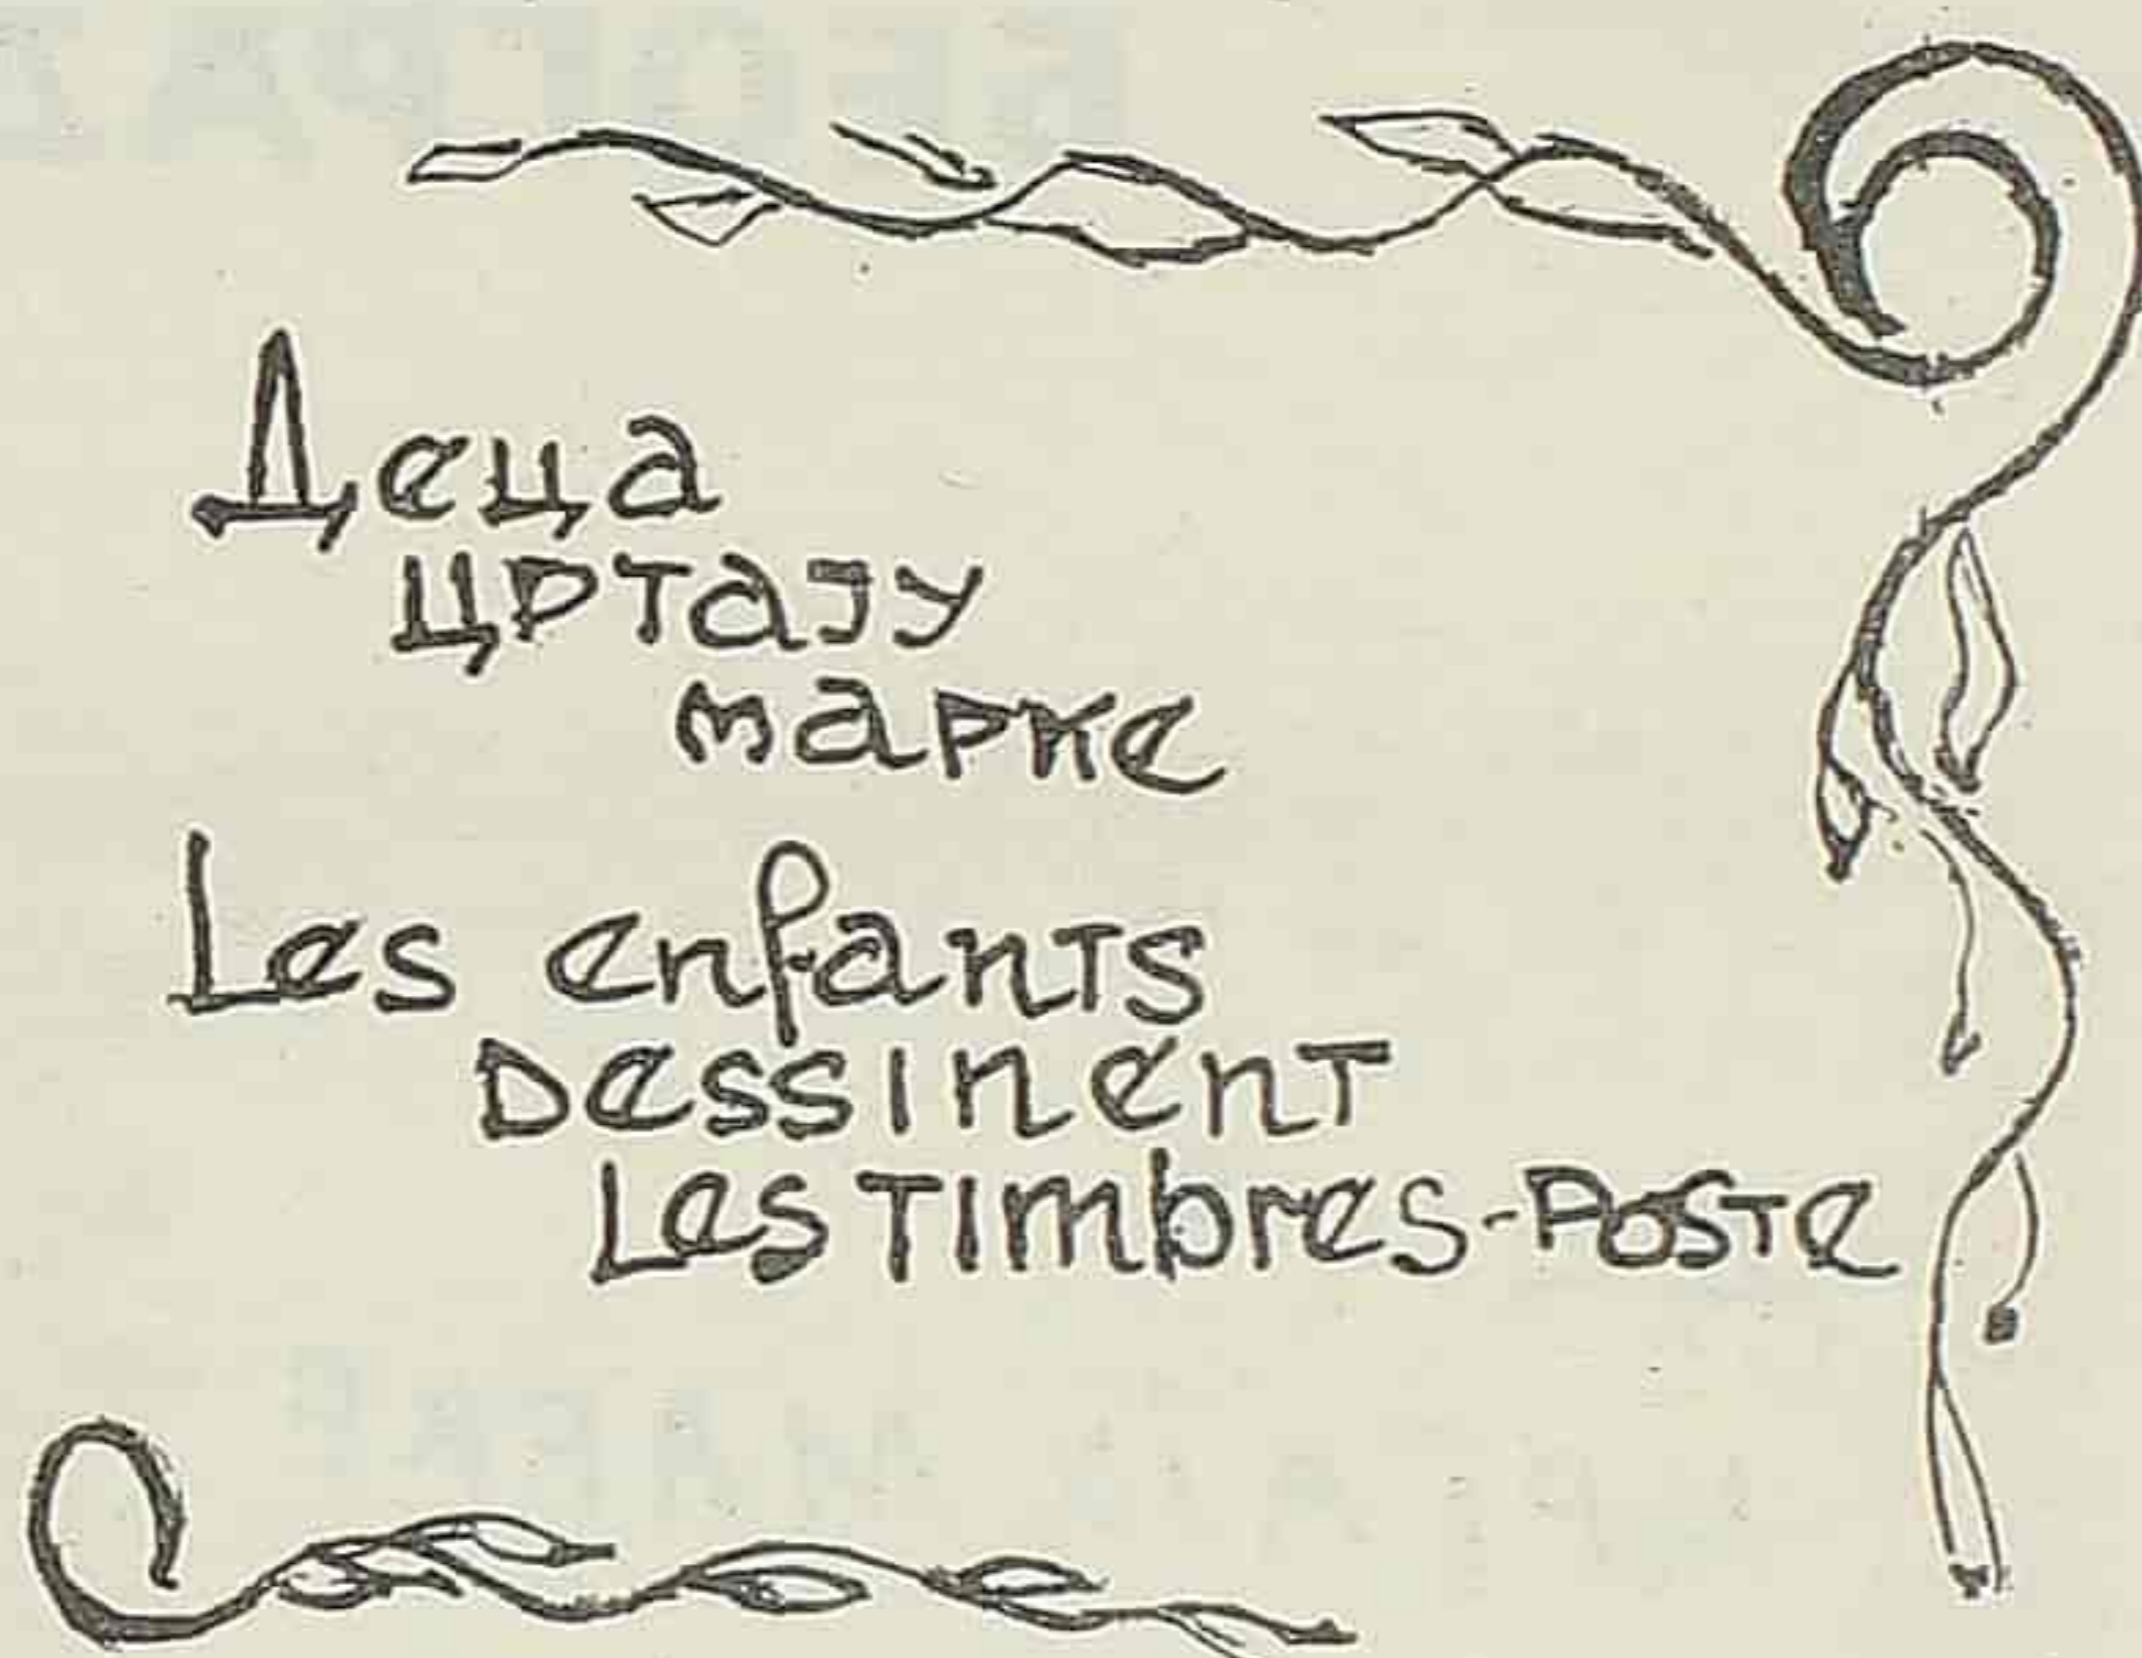 Деца
цртају
марке
Les enfants
dessinent
les timbres-poste